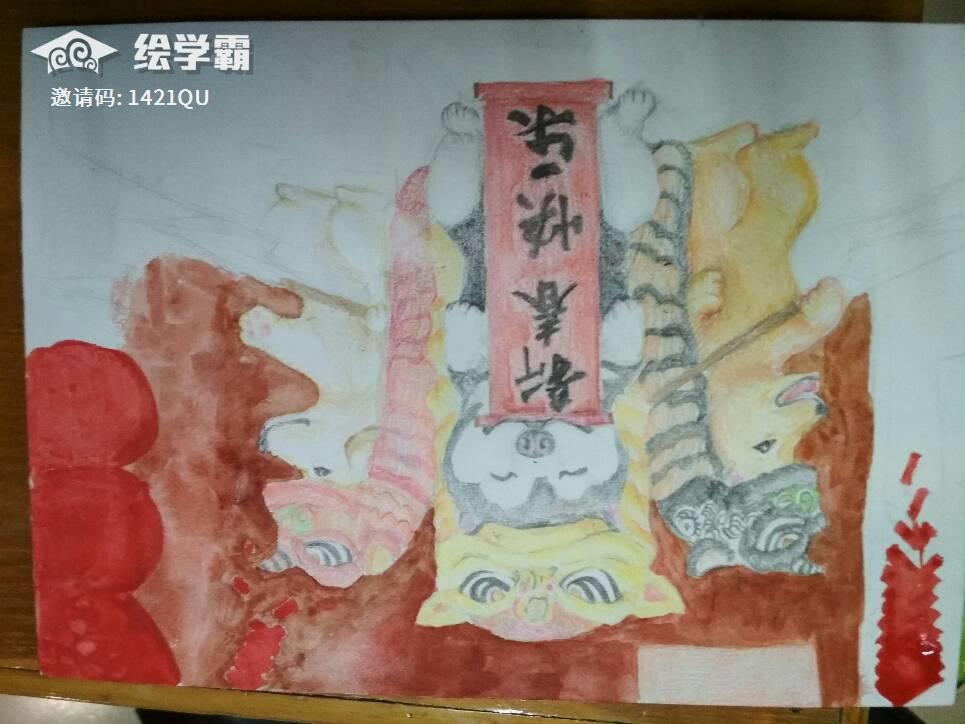 绘学霸
邀请码: 1421QU
新春快乐